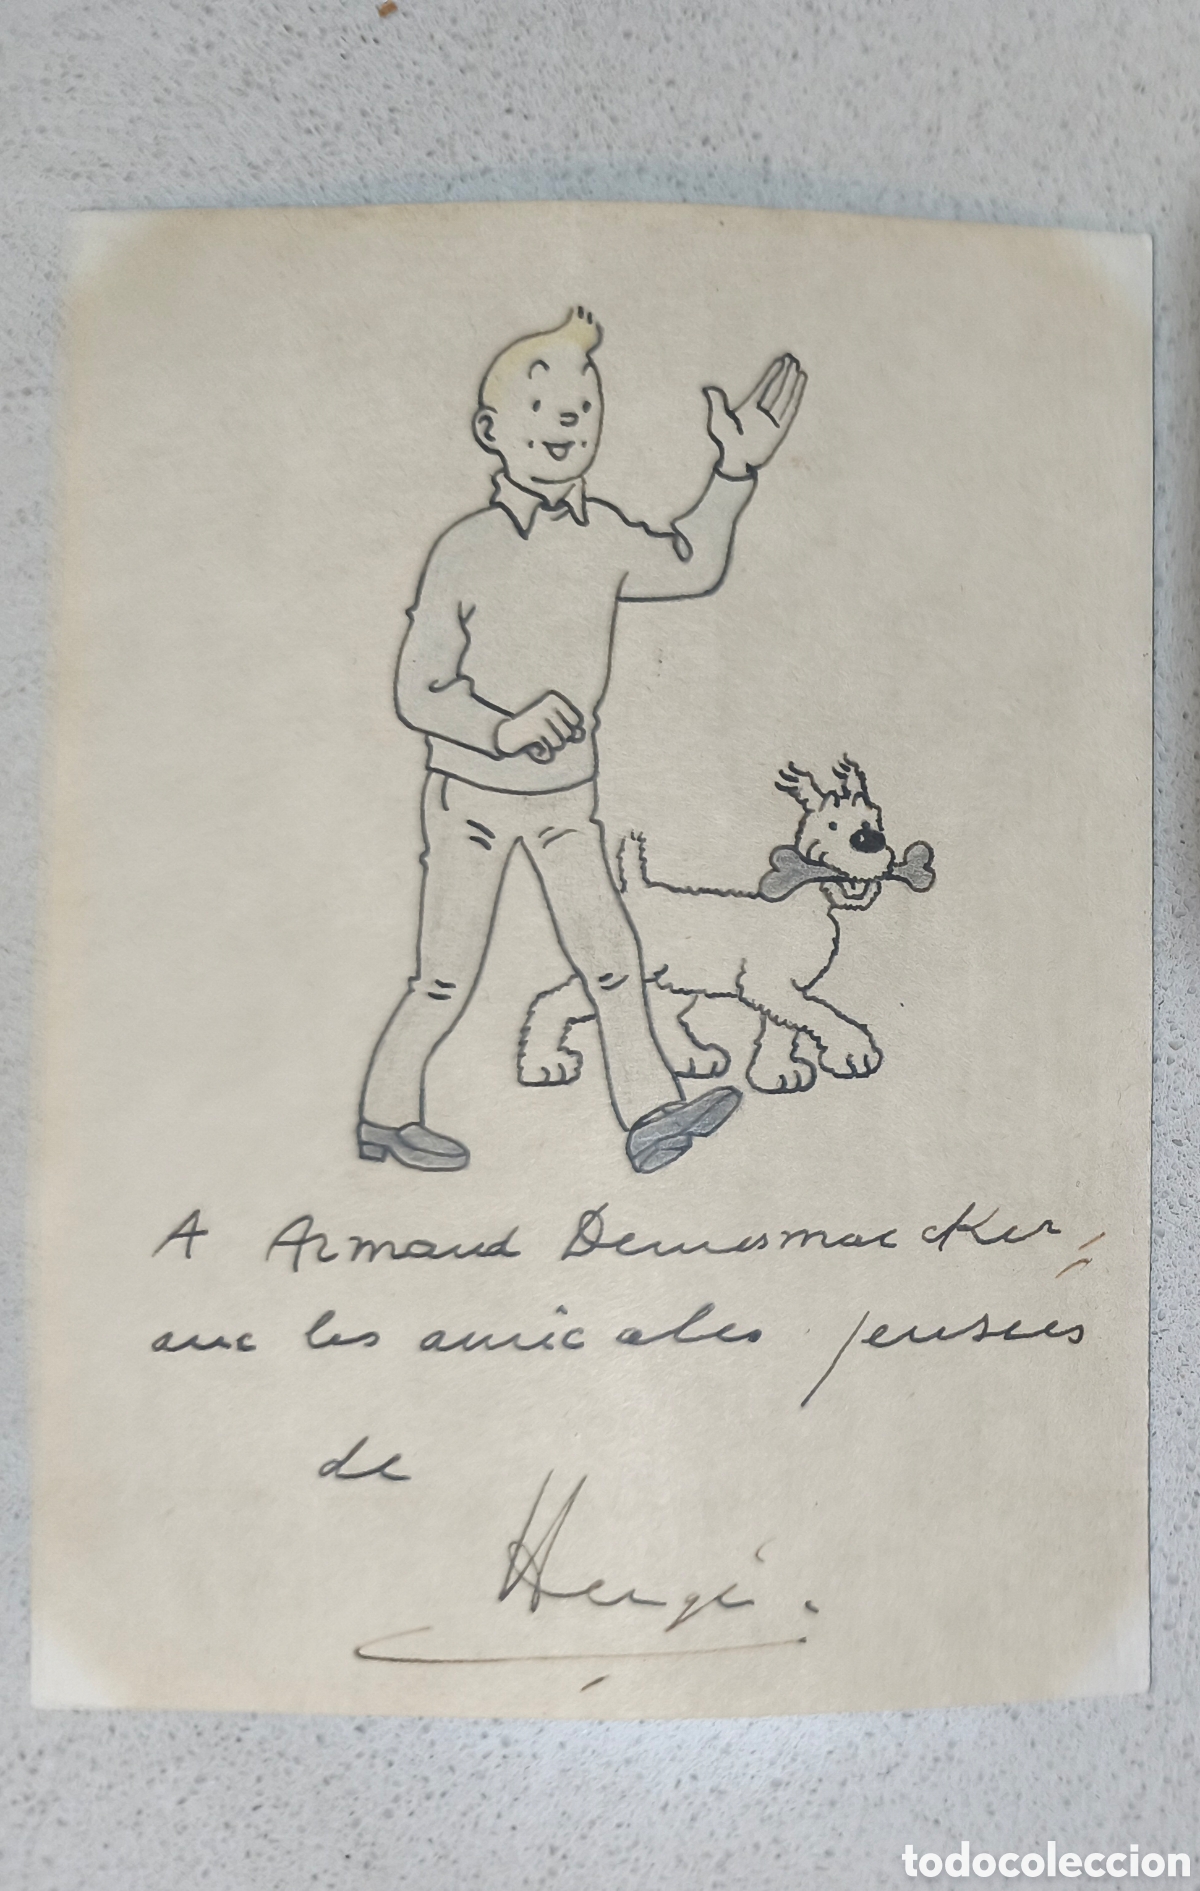 A Armand Demesmaecker,
avec les amicales pensées
de
Hergé.
todocoleccion